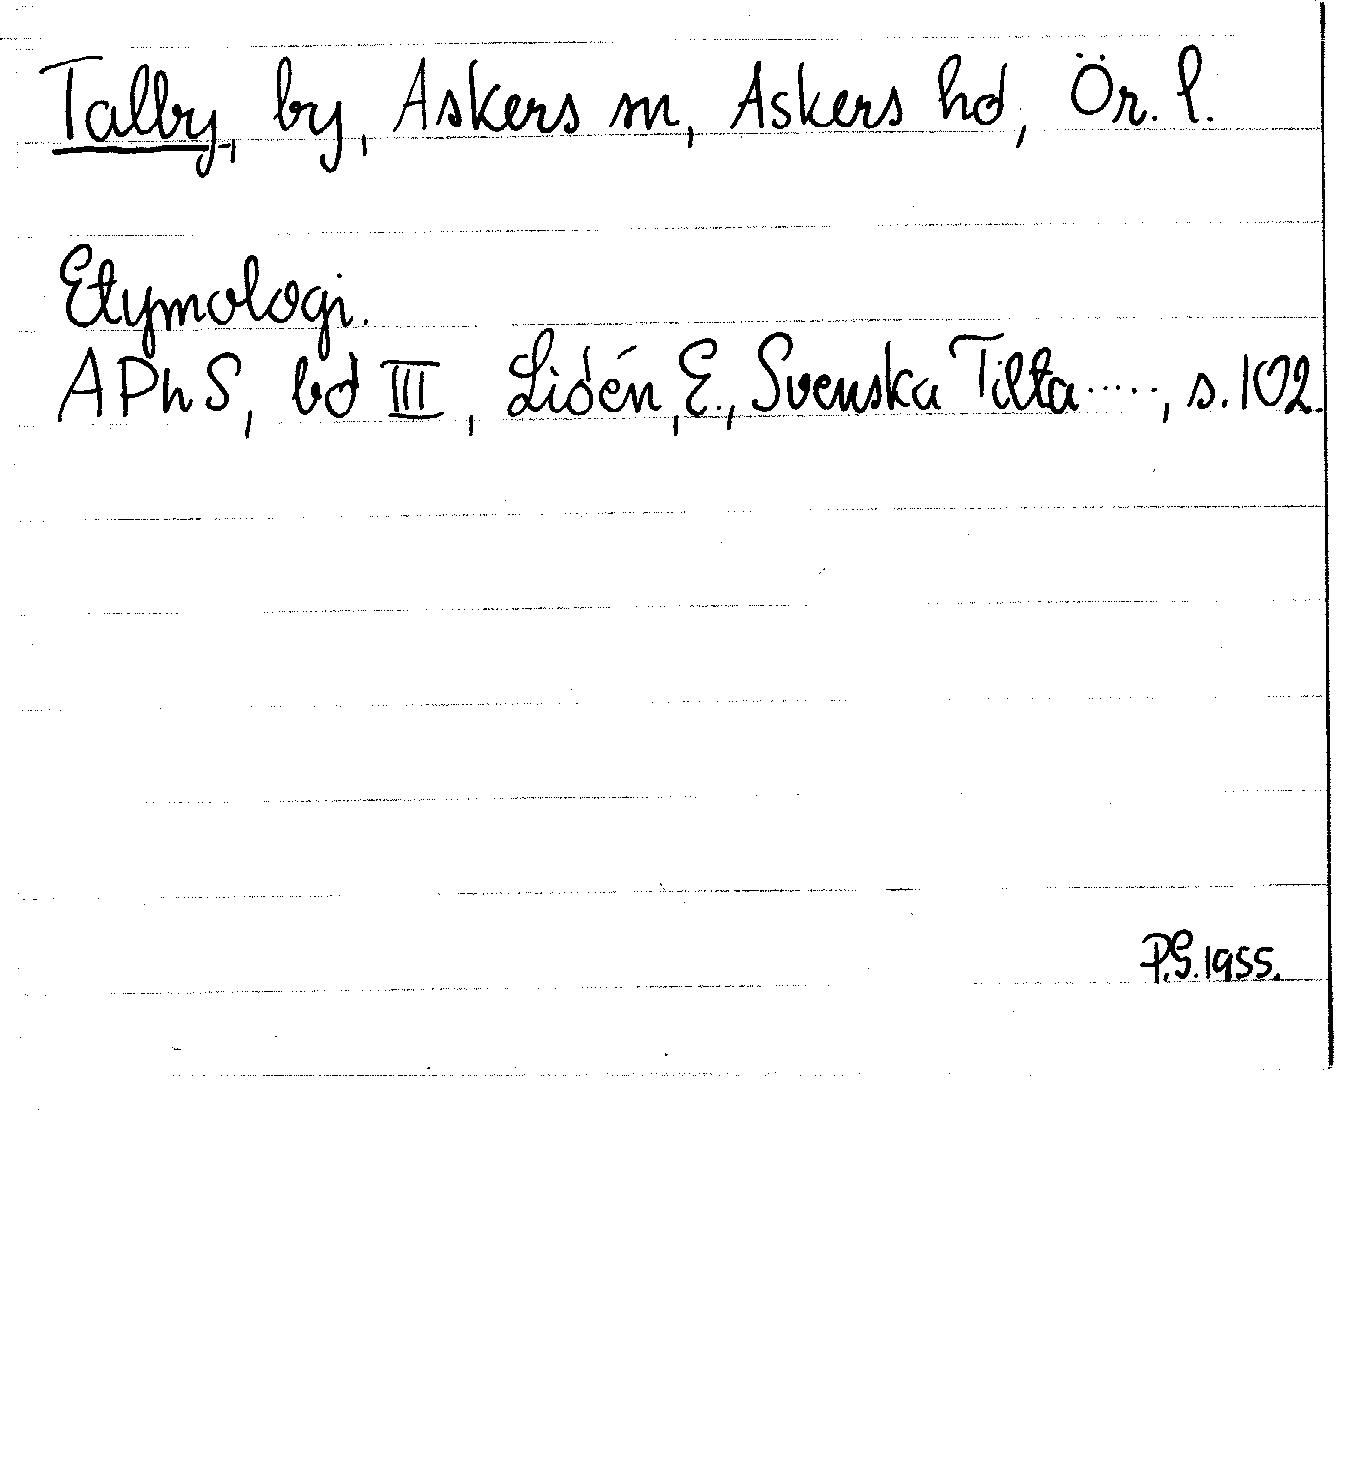 Talby, by, Askers sn, Askers hd, Ör. l.
Etymologi.
APhS, bd III, Lidén, E., Svenska Tilta ....., s. 102.
P.G. 1955.